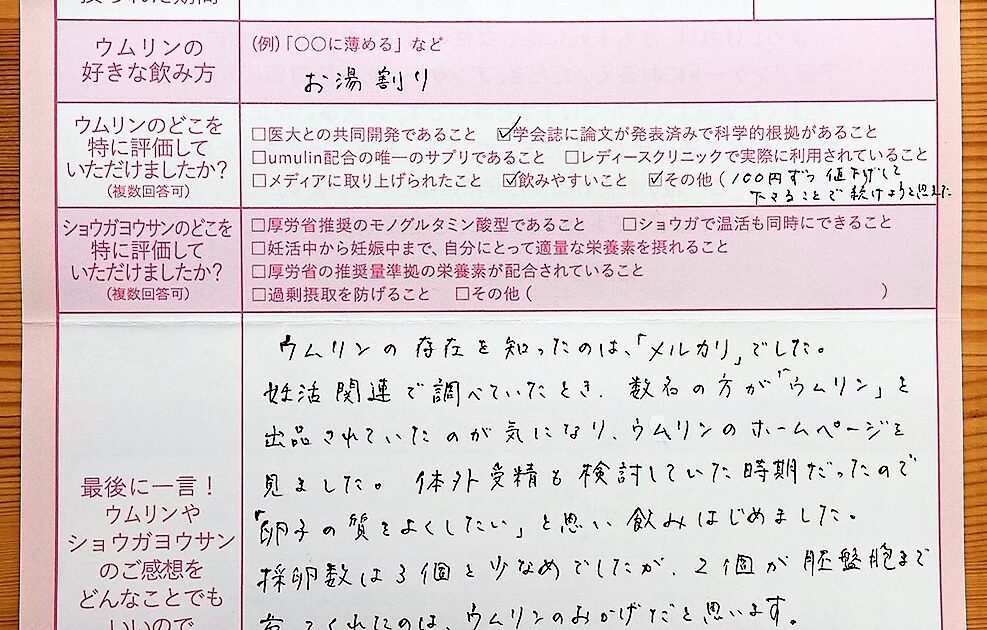 ウムリンの
好きな飲み方
(例)「〇〇に薄める」など
お湯割り
ウムリンのどこを
特に評価して
いただけましたか?
(複数回答可)
□医大との共同開発であること ☑学会誌に論文が発表済みで科学的根拠があること
□umulin配合の唯一のサプリであること □レディースクリニックで実際に利用されていること
□メディアに取り上げられたこと ☑飲みやすいこと ☑その他(100円ずつ値下げして
下さることで続けようと思えた
ショウガヨウサンのどこを
特に評価して
いただけましたか?
(複数回答可)
□厚労省推奨のモノグルタミン酸型であること □ショウガで温活も同時にできること
□妊活中から妊娠中まで、自分にとって適量な栄養素を摂れること
□厚労省の推奨量準拠の栄養素が配合されていること
□過剰摂取を防げること □その他( )
最後に一言!
ウムリンや
ショウガヨウサン
のご感想を
どんなことでも
いいので
ウムリンの存在を知ったのは、「メルカリ」でした。
妊活関連で調べていたとき、数名の方が「ウムリン」を
出品されていたのが気になり、ウムリンのホームページを
見ました。体外受精も検討していた時期だったので
「卵子の質をよくしたい」と思い飲みはじめました。
採卵数は3個と少なめでしたが、2個が胚盤胞まで
育ってくれたのは、ウムリンのおかげだと思います。